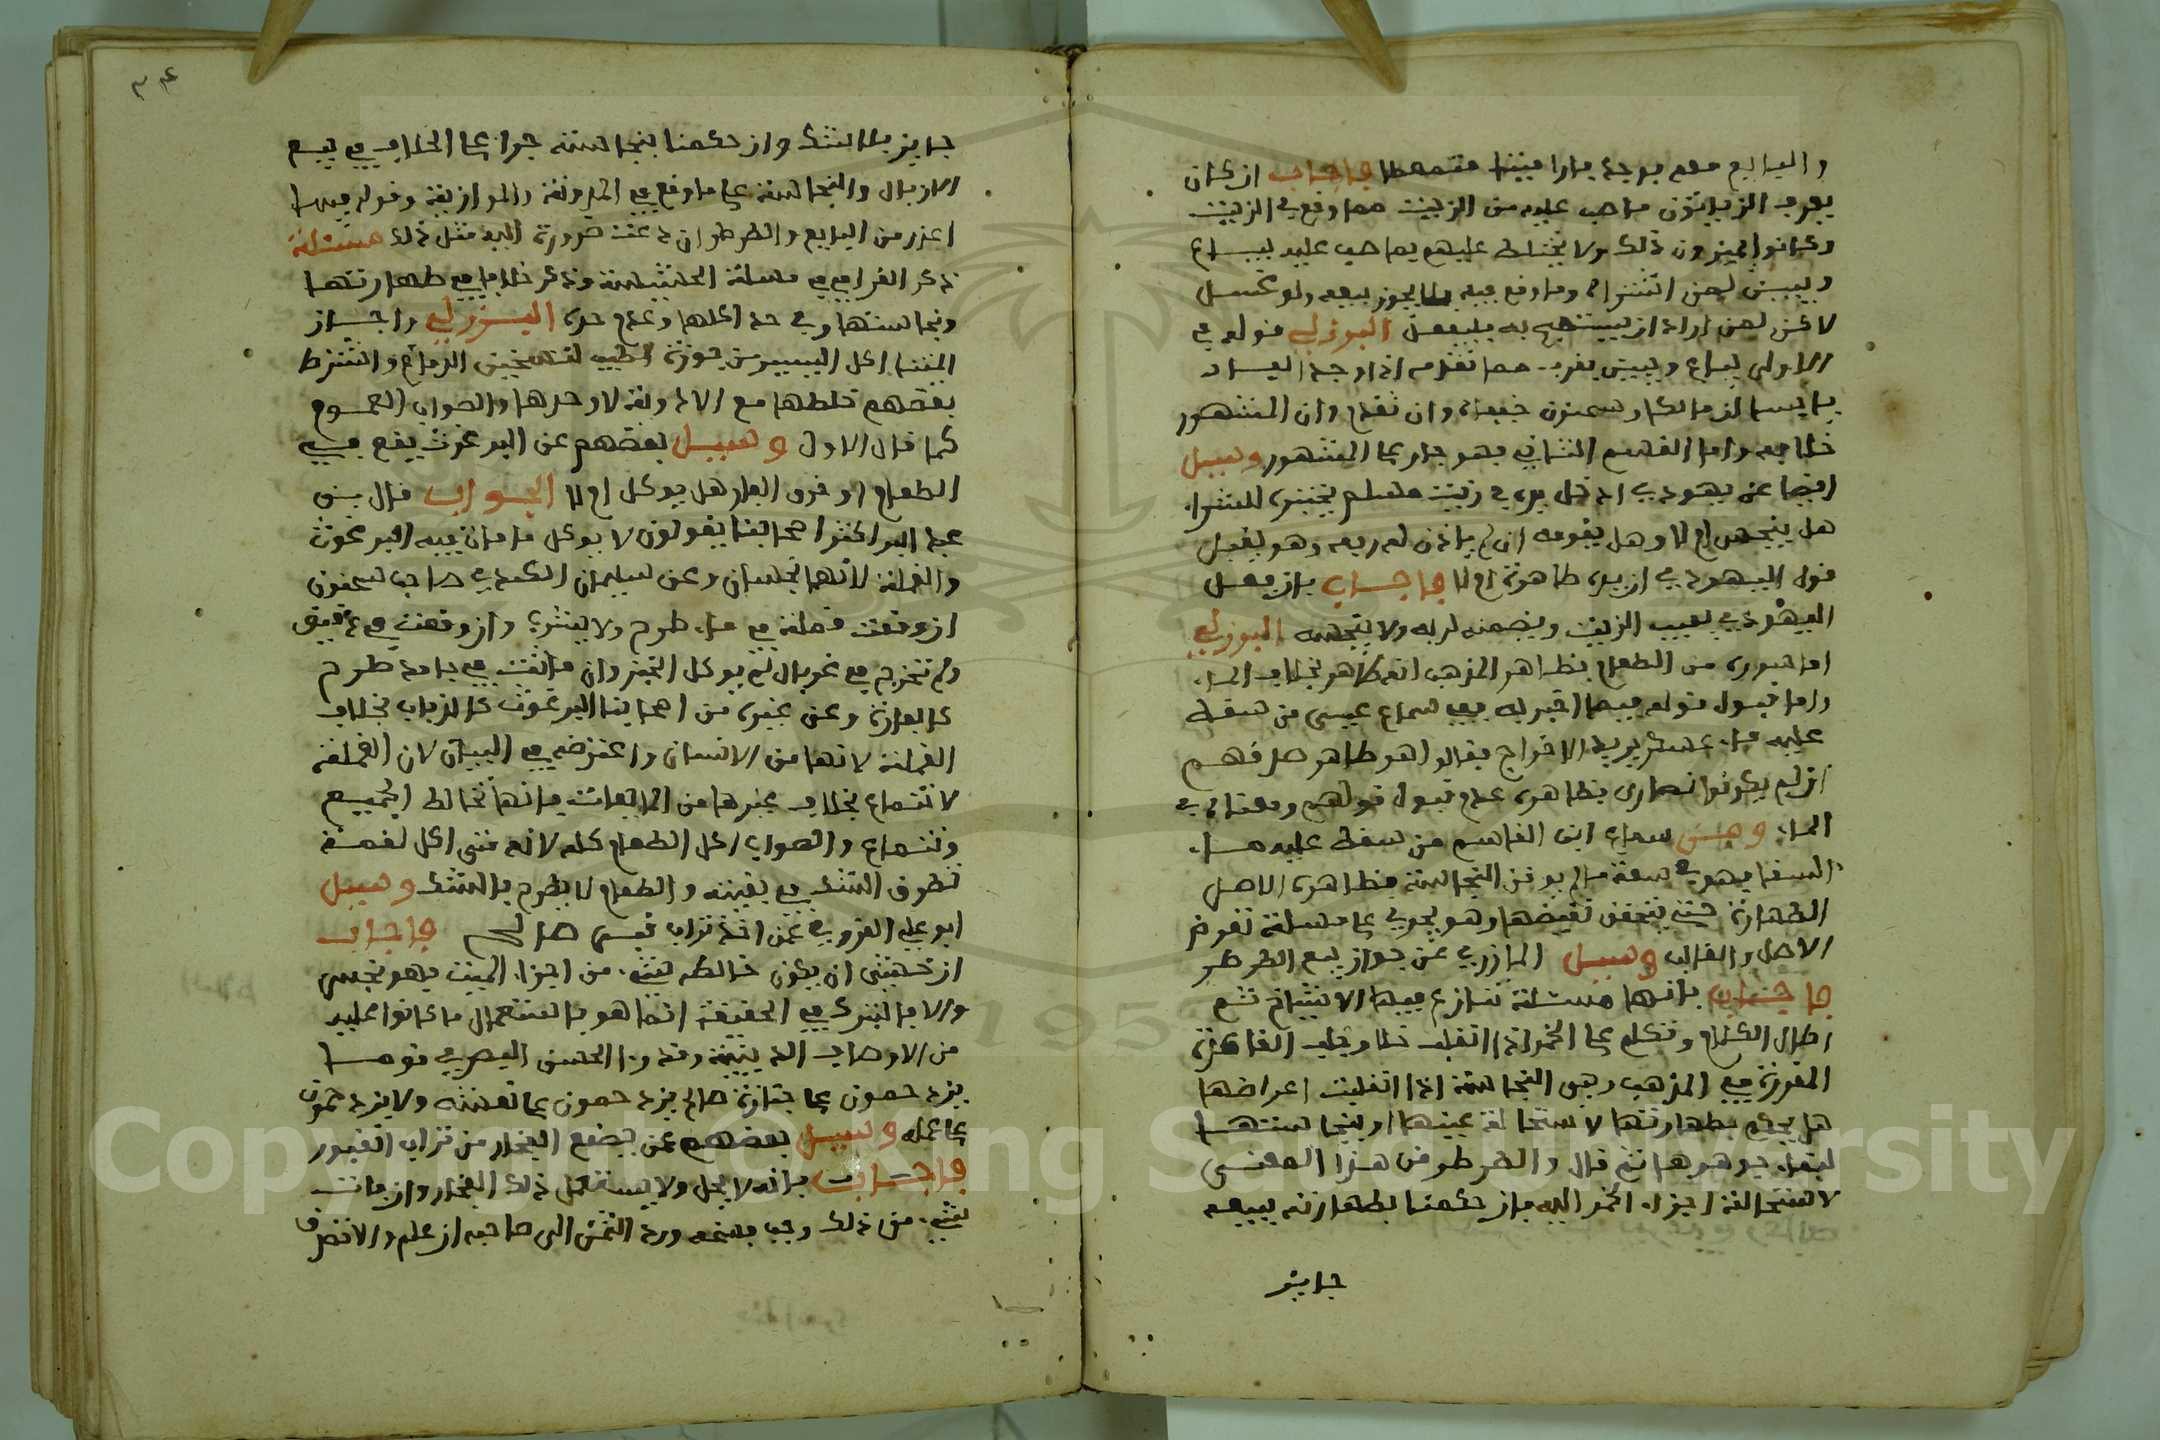 والبايع معه يوجد فارا ميتا متمعطا فاجاب ان كان
يعرف الزياتون صاحب عليه من الزيت مما وقع في الزيت
وكانوا يميزون ذلك ولا يختلط عليهم بما صب عليه يباع
ويبين لمن اشتراه وما وقع فيه فلا يجوز بيعه ولو غسل
لاكن لمن اراد ان يستصبح به فليفعل البرزلي قوله في
الاولى يباع ويبين يعرف مما تقدم اذا وجد الفساد
خلافه واما القسم الثاني فهو جار على المشهور وسيل
ايضا عن يهودي ادخل يده في زيت مسلم يختبره للشراء
هل ينجس ام لا وهل يقومه ان لم ياذن له ربه وهو يقبل
قول اليهودي ان يده طاهرة ام لا فاجاب بان فعل
اليهودي يعيب الزيت ويضمنه لربه ولا ينجسه البرزلي
اما سوره من الطعام فظاهر المذهب انه طاهر بخلاف الماء
واما قبول قوله فيما اخبر به ففي سماع عيسى من سقط
عليه ماء عسكر يريد الافراج فقالوا هو طاهر صدقهم
ان لم يكونوا نصارى فظاهره عدم قبول قولهم ومعناه في
الماء وفي سماع ابن القاسم من سقط عليه ماء
السقا فهو في سعة ما لم يوقن النجاسة فظاهره الاصل
الطهارة حتى يتحقق نقيضها وهو يجري على مسلة تعرض
الاصل والغالب وسيل المازري عن جواز بيع الطرطر
فاجاب بانها مسئلة تنازع فيها الاشياخ ثم
اطال الكلام وتكلم على الخمر اذا انقلب خلا وجلب القاعدة
المقررة في المذهب وهي النجاسة اذا انقلبت اعراضها
هل يحكم بطهارتها لاستحالة عينها او بنجاستها
لبقاء جوهرها ثم قال والطرطر من هذا المعنى
لاستحالة اجزاء الخمر اليه فان حكمنا بطهارته فبيعه
جايز
٣٤
جايز بلا شك وان حكمنا بنجاسته جرا على الخلاف في بيع
الازبال والنجاسة على ما وقع في المدونة والموازية وقوله فيها
اعذر من البايع والطرطر ان دعت ضرورة اليه مثل ذلك مسئلة
ذكر القرافي في مسلة الحشيشة وذكر خلافا في طهارتها
ونجاستها وفي حد اكلها وعدم حده البرزلي واجاز
ايمتنا اكل اليسير من جوزة الطيب لتسخين الدماغ واشترط
بعضهم خلطها مع الادوية لا وحدها والصواب العموم
كما قال الاول وسيل بعضهم عن البرغوث يقع في
الطعام او خرء الفار هل يوكل ام لا الجواب قال بن
عبد البر اكثر اصحابنا يقولون لا يوكل ما مات فيه البرغوث
والقملة لانهما نجسان وعن سليمان الكندي صاحب سحنون
ان وقعت قملة في ماء طرح ولا يشرب وان وقعت في دقيق
ولم تخرج في غربال لم يوكل الخبز وان ماتت في جامد طرح
كالفارة وعن غيره من اصحابنا البرغوث كالذباب بخلاف
القملة لانها من الانسان واعترضه في البيان لان القملة
لا تشاع بخلاف غيرها من المايعات فانها تخالط الجميع
وتشاع والصواب اكل الطعام كله لانه متى اكل لقمة
تطرق الشك في بقيته والطعام لا يطرح بالشك وسيل
ابو علي القروي عمن اخذ تراب قبر صالح فاجاب
ان خشي ان يكون خالطه شيء من اجزاء الميت فهو نجس
والا فالتبرك في الحقيقة انما هو باستعمال ما كانوا عليه
من الاوصاف الدينية وقد را الحسن البصري قوما
يزدحمون على جنازة صالح يزدحمون على نعشه ولا يزدحمون
على عمله وسيل بعضهم عمن يصنع الفخار من تراب القبور
فاجاب بانه لا يحل ولا يستعمل ذلك الفخار وان فات
شيء من ذلك وجب فسخه ورد الثمن الى صاحبه ان علم والا تصرف